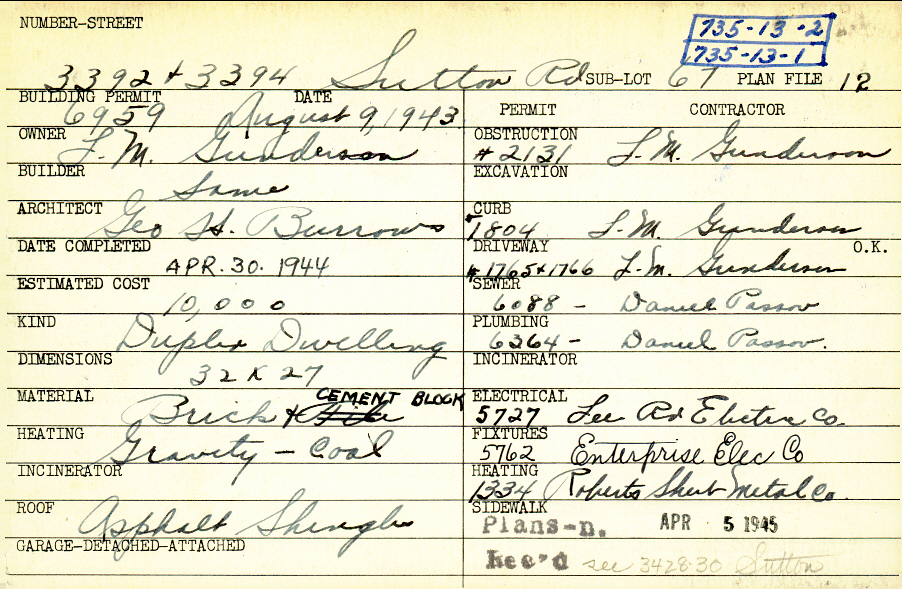 NUMBER-STREET
735-13-2
735-13-1
3392 + 3394 Sutton Rd SUB-LOT 67 PLAN FILE 12
BUILDING PERMIT DATE
6959 August 9, 1943
OWNER
L. M. Gunderson
BUILDER
Same
ARCHITECT
Geo H. Burrows
DATE COMPLETED
APR. 30. 1944
ESTIMATED COST
10,000
KIND
Duplex Dwelling
DIMENSIONS
32 X 27
MATERIAL CEMENT BLOCK
Brick + Tile
HEATING
Gravity - Coal
INCINERATOR
ROOF
Asphalt Shingles
GARAGE-DETACHED-ATTACHED
PERMIT CONTRACTOR
OBSTRUCTION
# 2131 L. M. Gunderson
EXCAVATION
CURB
1804 L. M. Gunderson
DRIVEWAY O.K.
# 1765 + 1766 L. M. Gunderson
SEWER
6088 - Daniel Passov
PLUMBING
6364 - Daniel Passov.
INCINERATOR
ELECTRICAL
5727 Lee Rd Electric Co.
FIXTURES
5762 Enterprise Elec Co
HEATING
1334 Roberts Sheet Metal Co.
SIDEWALK
Plans-n. APR 5 1945
Rec'd see 3428-30 Sutton